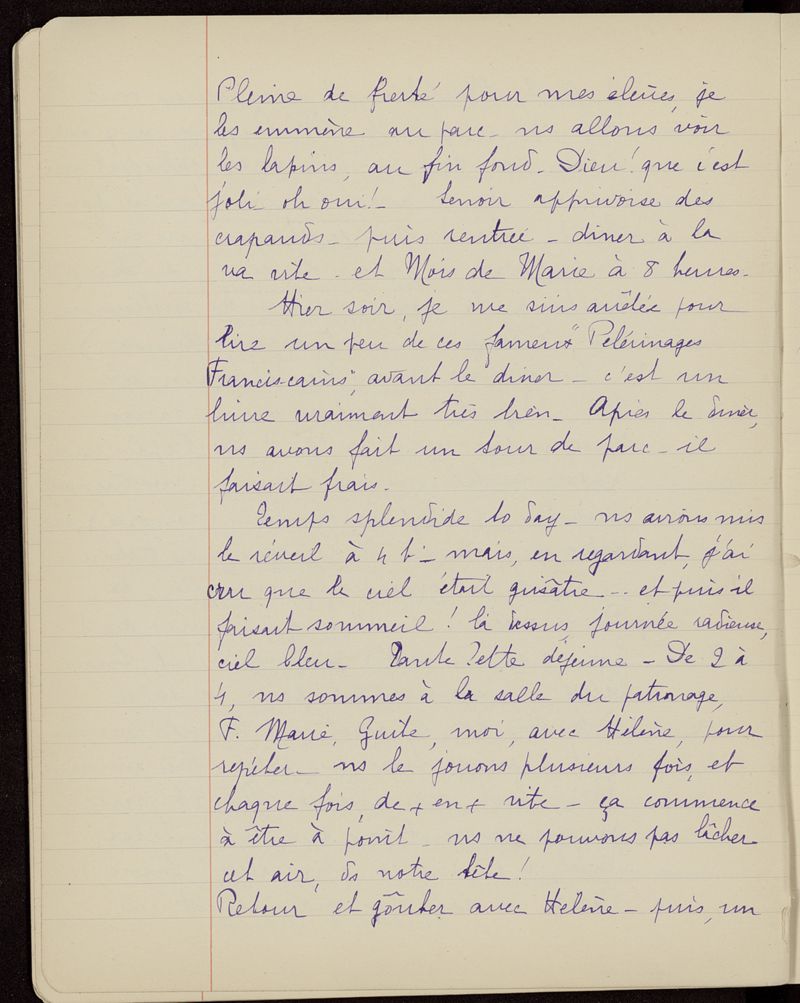 Pleine de fierté pour mes élèves, je
les emmène au parc - ns allons voir
les lapins, au fin fond. Dieu! que c'est
joli oh oui! - Lenoir apprivoise des
crapauds - puis rentrée - diner à la
va vite - et Mois de Marie à 8 heures.
Hier soir, je me suis arrêtée pour
lire un peu de ces fameux "Pélérinages
Franciscains", avant le diner - c'est un
livre vraiment très bien - Après le diner,
ns avons fait un tour de parc - il
faisait frais.
Temps splendide to day - ns avions mis
le réveil à 4 h - mais, en regardant, j'ai
cru que le ciel était grisâtre - et puis il
faisait sommeil! là dessus, journée radieuse,
ciel bleu - Tante déjeune - De 2 à
4, ns sommes à la salle du patronage,
F. Marie, Guite, moi, avec Hélène, pour
repéter - ns le jouons plusieurs fois, et
chaque fois, de + en + vite - ça commence
à être à point - ns ne pouvons pas lâcher
cet air, ds notre tête!
Retour et goûter avec Hélène - puis, un